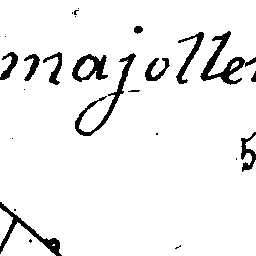 majoller
5